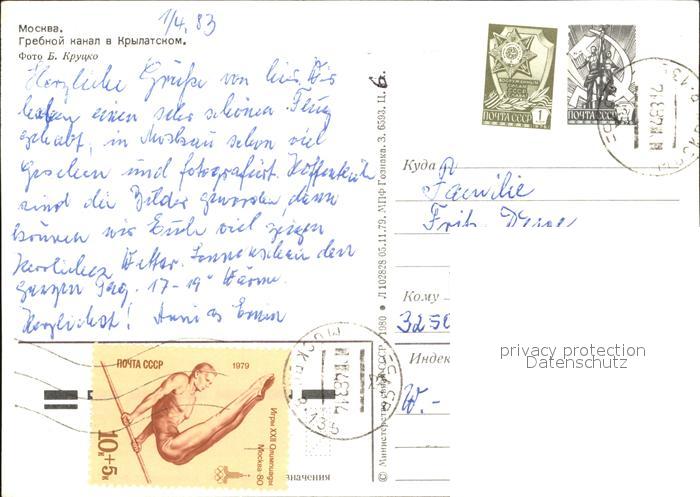 1/4.83
Москва.
Гребной канал в Крылатском.
Фото Б. Круцко
Herzliche Grüße von hier. Wir
haben einen sehr schönen Flug
gehabt, in Moskau schon viel
gesehen und fotografiert. Hoffentlich
sind die Bilder geworden, dann
können wir Euch viel zeigen
Herrliches Wetter. Sonnenschein den
ganzen Tag. 17-19° Wärme.
Herzlichst!
ПОЧТА СССР 1
ПОЧТА СССР
Куда
Familie
Fritz
Кому
3250
Индек
privacy protection
Datenschutz
W.-
© Министерство связи СССР. 1980 ● Л 102828 05.11.79. МПФ Гознака. З. 6593. Ц. 6
ПОЧТА СССР 1979
10к+5к
Игры XXII Олимпиады
Москва-80
значения